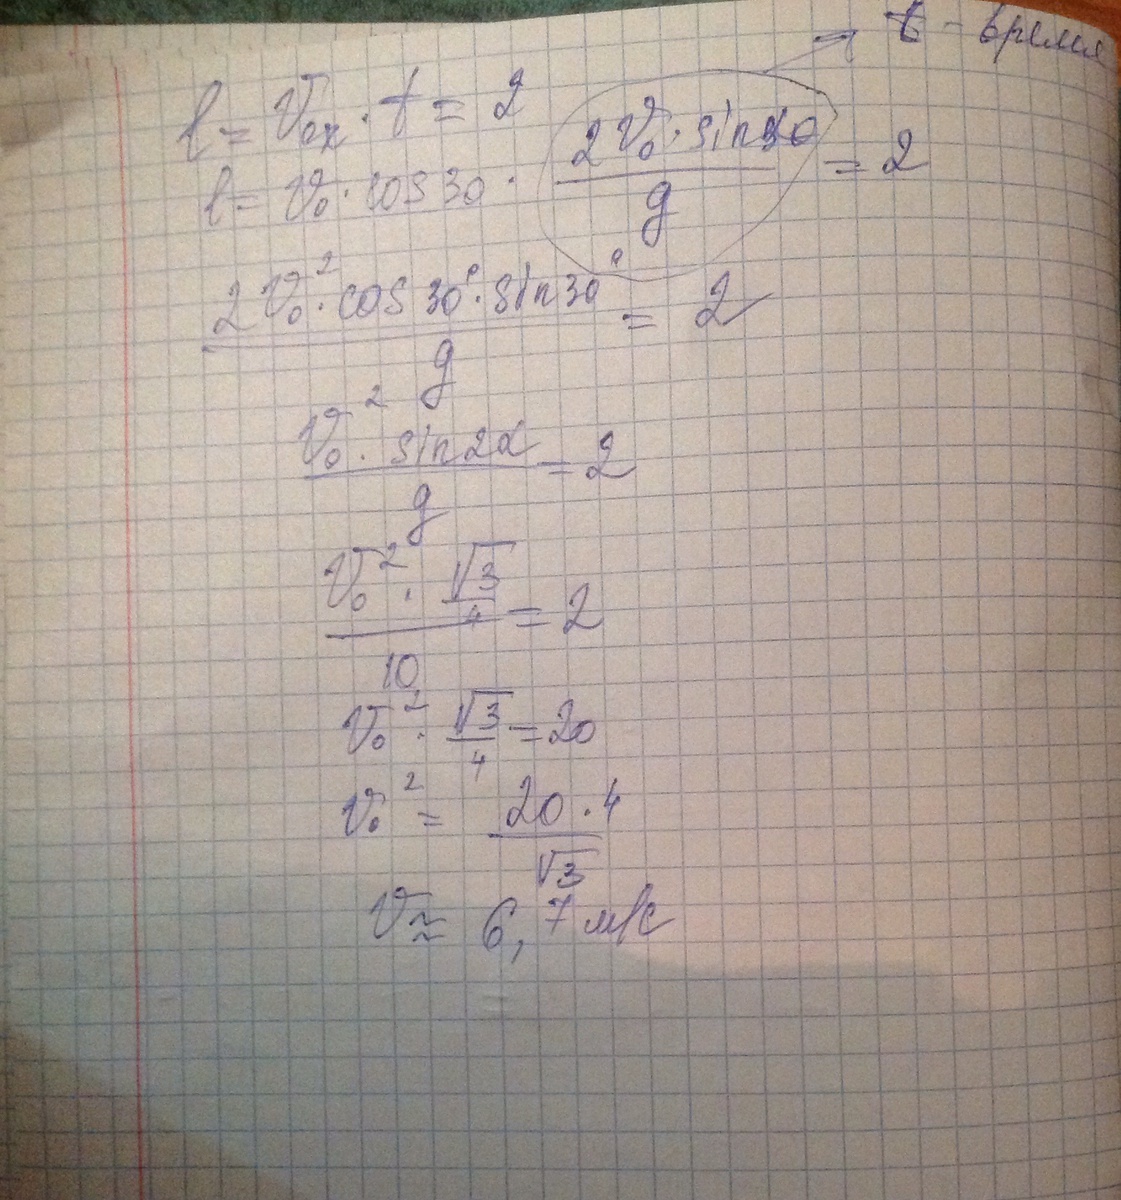 t - время
l = V₀ₓ · t = 2
l = V₀ · cos 30 · (2V₀ · sin 30)/g = 2
(2V₀² · cos 30° · sin 30°)/g = 2
(V₀² · sin 2α)/g = 2
(V₀² · √3/4)/10 = 2
V₀² · √3/4 = 20
V₀² = (20 · 4)/√3
V ≈ 6,7 м/с